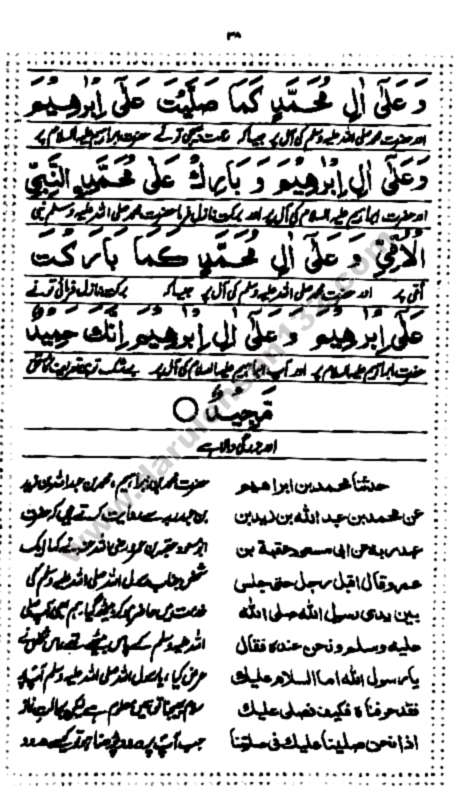 ۳۸
وَعَلَىٰ اٰلِ مُحَمَّدٍ كَمَا صَلَّيْتَ عَلَىٰ اِبْرٰهِيْمَ
اور حضرت محمد صلی اللہ علیہ وسلم کی آل پر جیسا کہ رحمت بھیجی تو نے حضرت ابراہیم علیہ السلام پر
وَعَلَىٰ اٰلِ اِبْرٰهِيْمَ وَبَارِكْ عَلٰى مُحَمَّدِ النَّبِيِّ
اور حضرت ابراہیم علیہ السلام کی آل پر اور برکت نازل فرما حضرت محمد صلی اللہ علیہ وسلم نبی
الْاُمِّيِّ وَعَلَىٰ اٰلِ مُحَمَّدٍ كَمَا بَارَكْتَ
امی پر اور حضرت محمد صلی اللہ علیہ وسلم کی آل پر جیسا کہ برکت نازل فرمائی تو نے
عَلَىٰ اِبْرٰهِيْمَ وَعَلَىٰ اٰلِ اِبْرٰهِيْمَ اِنَّكَ حَمِيْدٌ
حضرت ابراہیم علیہ السلام پر اور آپ ابراہیم علیہ السلام کی آل پر بے شک تو ہی تعریف کا مستحق
مَّجِيْدٌ ○
اور بزرگی والا ہے
حدثنا محمد بن ابراهيم
عن محمد بن عبد الله بن زيد بن
عبد ربه عن ابى مسعود عقبة بن
عمرو قال اقبل رجل حتى جلس
بين يدى رسول الله صلى الله
عليه وسلم ونحن عنده فقال
يا رسول الله اما السلام عليك
فقد عرفناه فكيف نصلى عليك
اذا نحن صلينا عليك فى صلوتنا
حضرت محمد بن ابراہیم، محمد بن عبداللہ بن زید
بن عبد ربہ سے روایت کرتے ہیں کہ حضرت
ابو مسعود عقبہ بن عمرو رضی اللہ عنہ نے کہا ایک
شخص جناب رسول اللہ صلی اللہ علیہ وسلم کی
خدمت میں حاضر ہو کر بیٹھ گیا، ہم بھی آپ صلی
اللہ علیہ وسلم کے پاس بیٹھے تھے، اس شخص نے
عرض کیا، یا رسول اللہ صلی اللہ علیہ وسلم آپ پر
سلام بھیجنا تو ہمیں معلوم ہے لیکن بحالت نماز
جب آپ پر درود پڑھنا ہو تو کیسے درود
www.darulihsan133.com